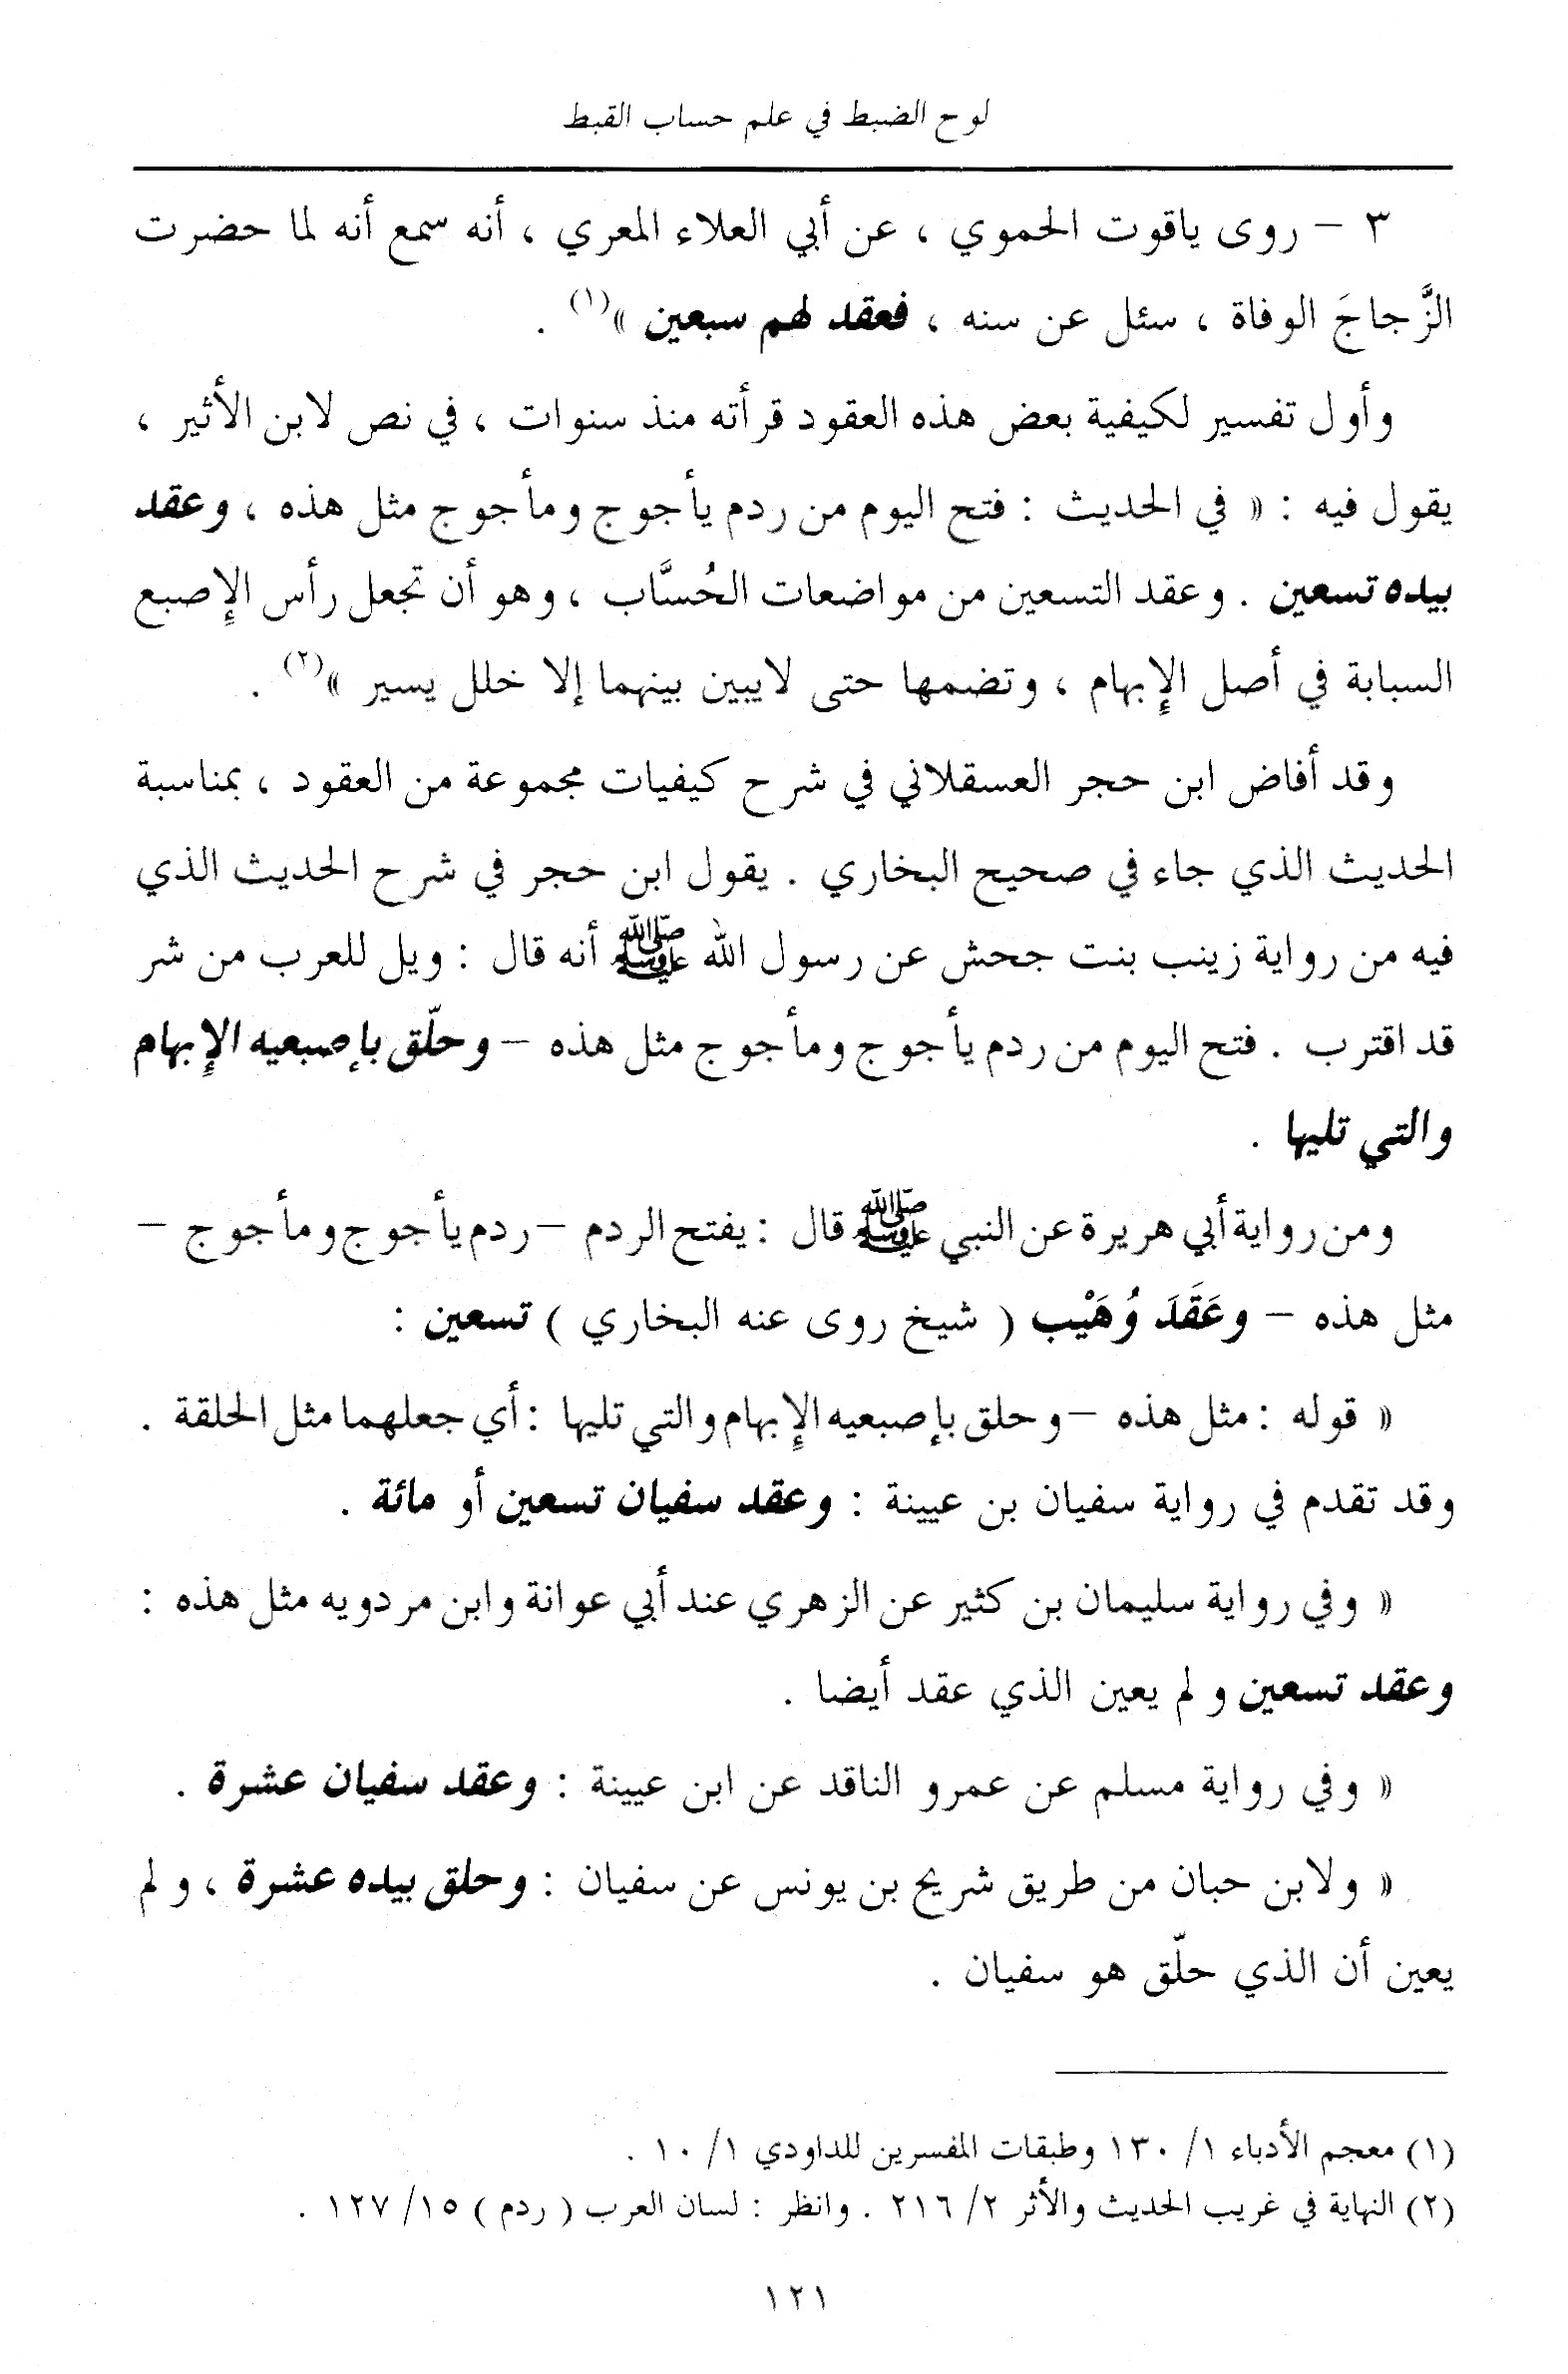 لوح الضبط في علم حساب القبط
٣ – روى ياقوت الحموي ، عن أبي العلاء المعري ، أنه سمع أنه لما حضرت
الزَّجاجَ الوفاة ، سئل عن سنه ، فعقد لهم سبعين »(١) .
وأول تفسير لكيفية بعض هذه العقود قرأته منذ سنوات ، في نص لابن الأثير ،
يقول فيه : « في الحديث : فتح اليوم من ردم يأجوج ومأجوج مثل هذه ، وعقد
بيده تسعين . وعقد التسعين من مواضعات الحُسَّاب ، وهو أن تجعل رأس الإصبع
السبابة في أصل الإبهام ، وتضمها حتى لايبين بينهما إلا خلل يسير »(٢) .
وقد أفاض ابن حجر العسقلاني في شرح كيفيات مجموعة من العقود ، بمناسبة
الحديث الذي جاء في صحيح البخاري . يقول ابن حجر في شرح الحديث الذي
فيه من رواية زينب بنت جحش عن رسول الله ﷺ أنه قال : ويل للعرب من شر
قد اقترب . فتح اليوم من ردم يأجوج ومأجوج مثل هذه – وحلّق بإصبعيه الإبهام
والتي تليها .
ومن رواية أبي هريرة عن النبي ﷺ قال : يفتح الردم – ردم يأجوج ومأجوج –
مثل هذه – وعَقَدَ وُهَيْب ( شيخ روى عنه البخاري ) تسعين :
« قوله : مثل هذه – وحلق بإصبعيه الإبهام والتي تليها : أي جعلهما مثل الحلقة .
وقد تقدم في رواية سفيان بن عيينة : وعقد سفيان تسعين أو مائة .
« وفي رواية سليمان بن كثير عن الزهري عند أبي عوانة وابن مردويه مثل هذه :
وعقد تسعين ولم يعين الذي عقد أيضا .
« وفي رواية مسلم عن عمرو الناقد عن ابن عيينة : وعقد سفيان عشرة .
« ولابن حبان من طريق شريح بن يونس عن سفيان : وحلق بيده عشرة ، ولم
يعين أن الذي حلّق هو سفيان .
(١) معجم الأدباء ١/ ١٣٠ وطبقات المفسرين للداودي ١/ ١٠ .
(٢) النهاية في غريب الحديث والأثر ٢/ ٢١٦ . وانظر : لسان العرب ( ردم ) ١٥/ ١٢٧ .
١٢١